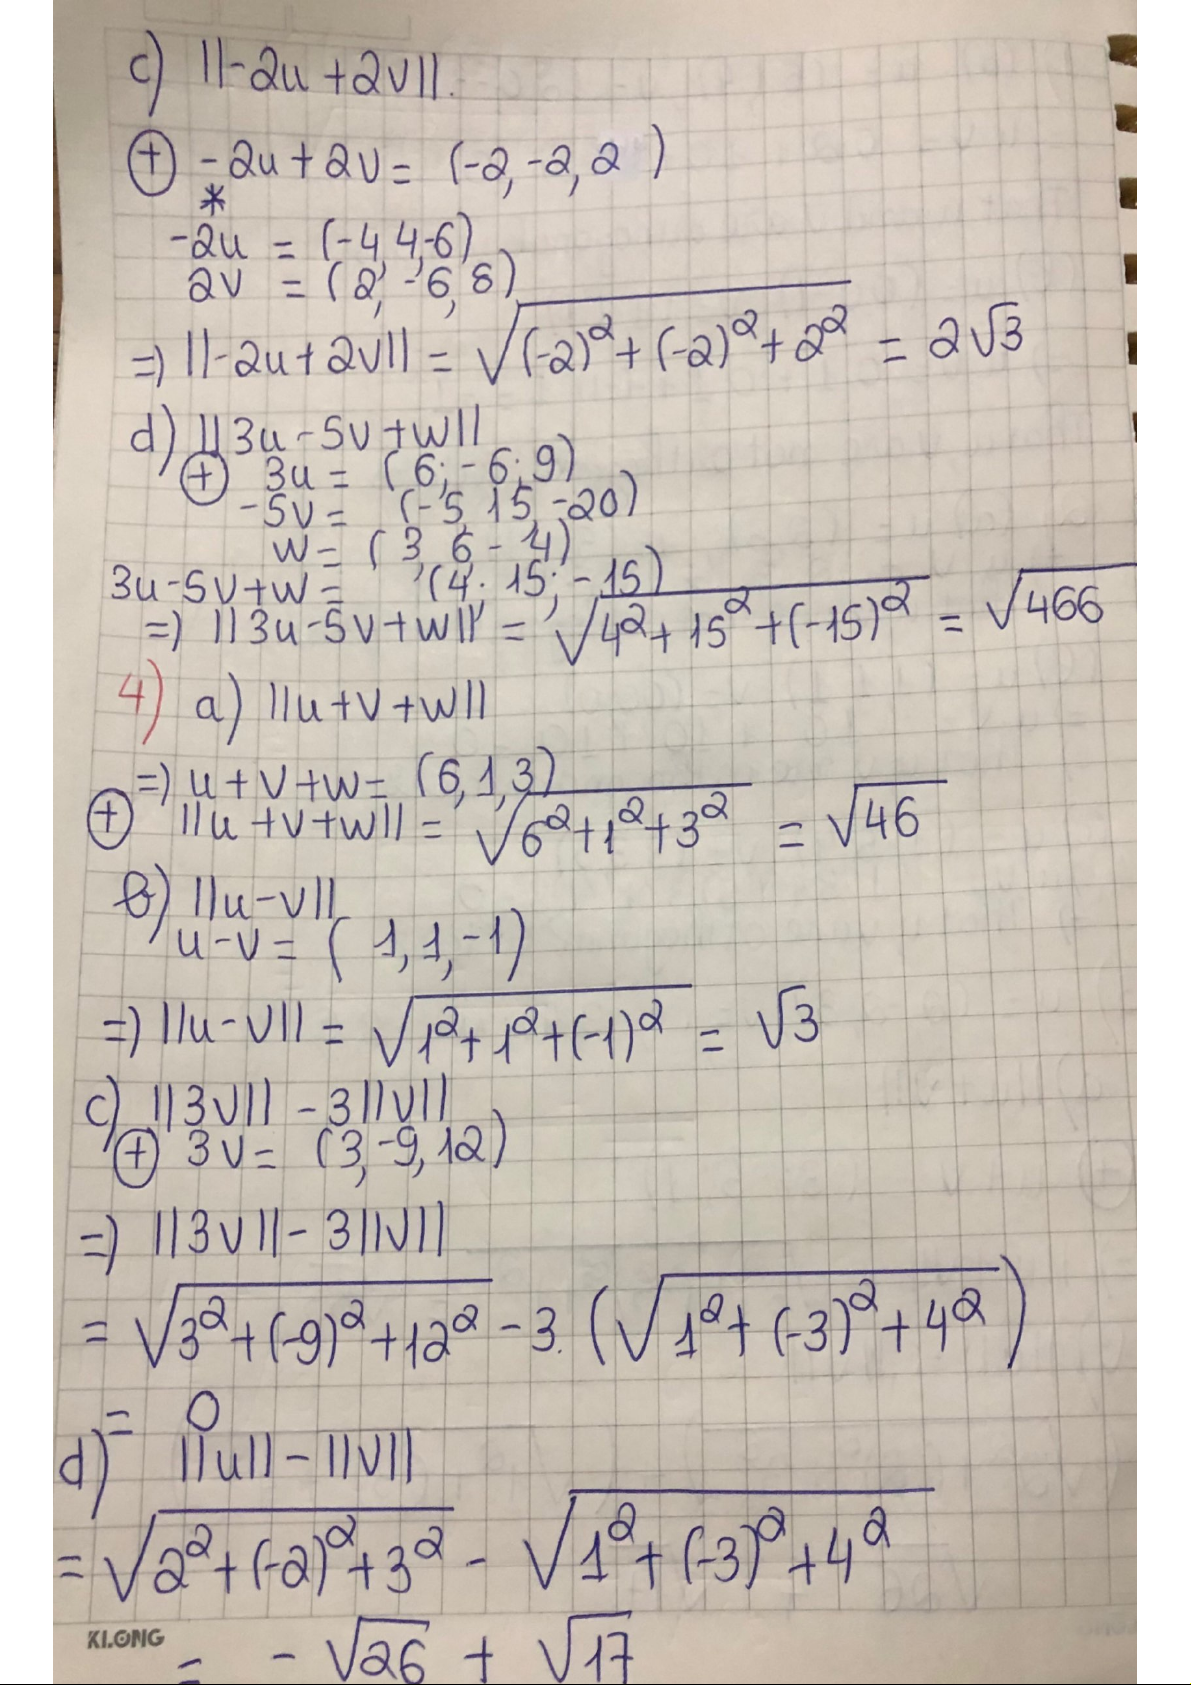 c) ||-2u+2v||.
⊕ -2u+2v= (-2,-2,2 )
*
-2u = (-4,4,-6)
2v = (2, -6,8)
=) ||-2u+2v|| = √((-2)²+(-2)²+2²) = 2√3
d) ||3u-5v+w||
⊕ 3u = (6; -6; 9)
-5v= (-5, 15, -20)
w= ( 3, 6 - 4)
3u-5v+w= (4; 15; -15)
=) ||3u-5v+w|| = √(4²+15²+(-15)²) = √466
4) a) ||u+v+w||
=) u+v+w= (6,1,3)
⊕ ||u+v+w|| = √(6²+1²+3²) = √46
b) ||u-v||
u-v= ( 1,1,-1)
=) ||u-v|| = √(1²+1²+(-1)²) = √3
c) ||3v|| -3||v||
⊕ 3v= (3,-9,12)
=) ||3v||-3||v||
= √(3²+(-9)²+12²) -3. (√(1²+(-3)²+4²))
= 0
d) ||u||-||v||
= √(2²+(-2)²+3²) - √(1²+(-3)²+4²)
KLONG
= -√26 + √17